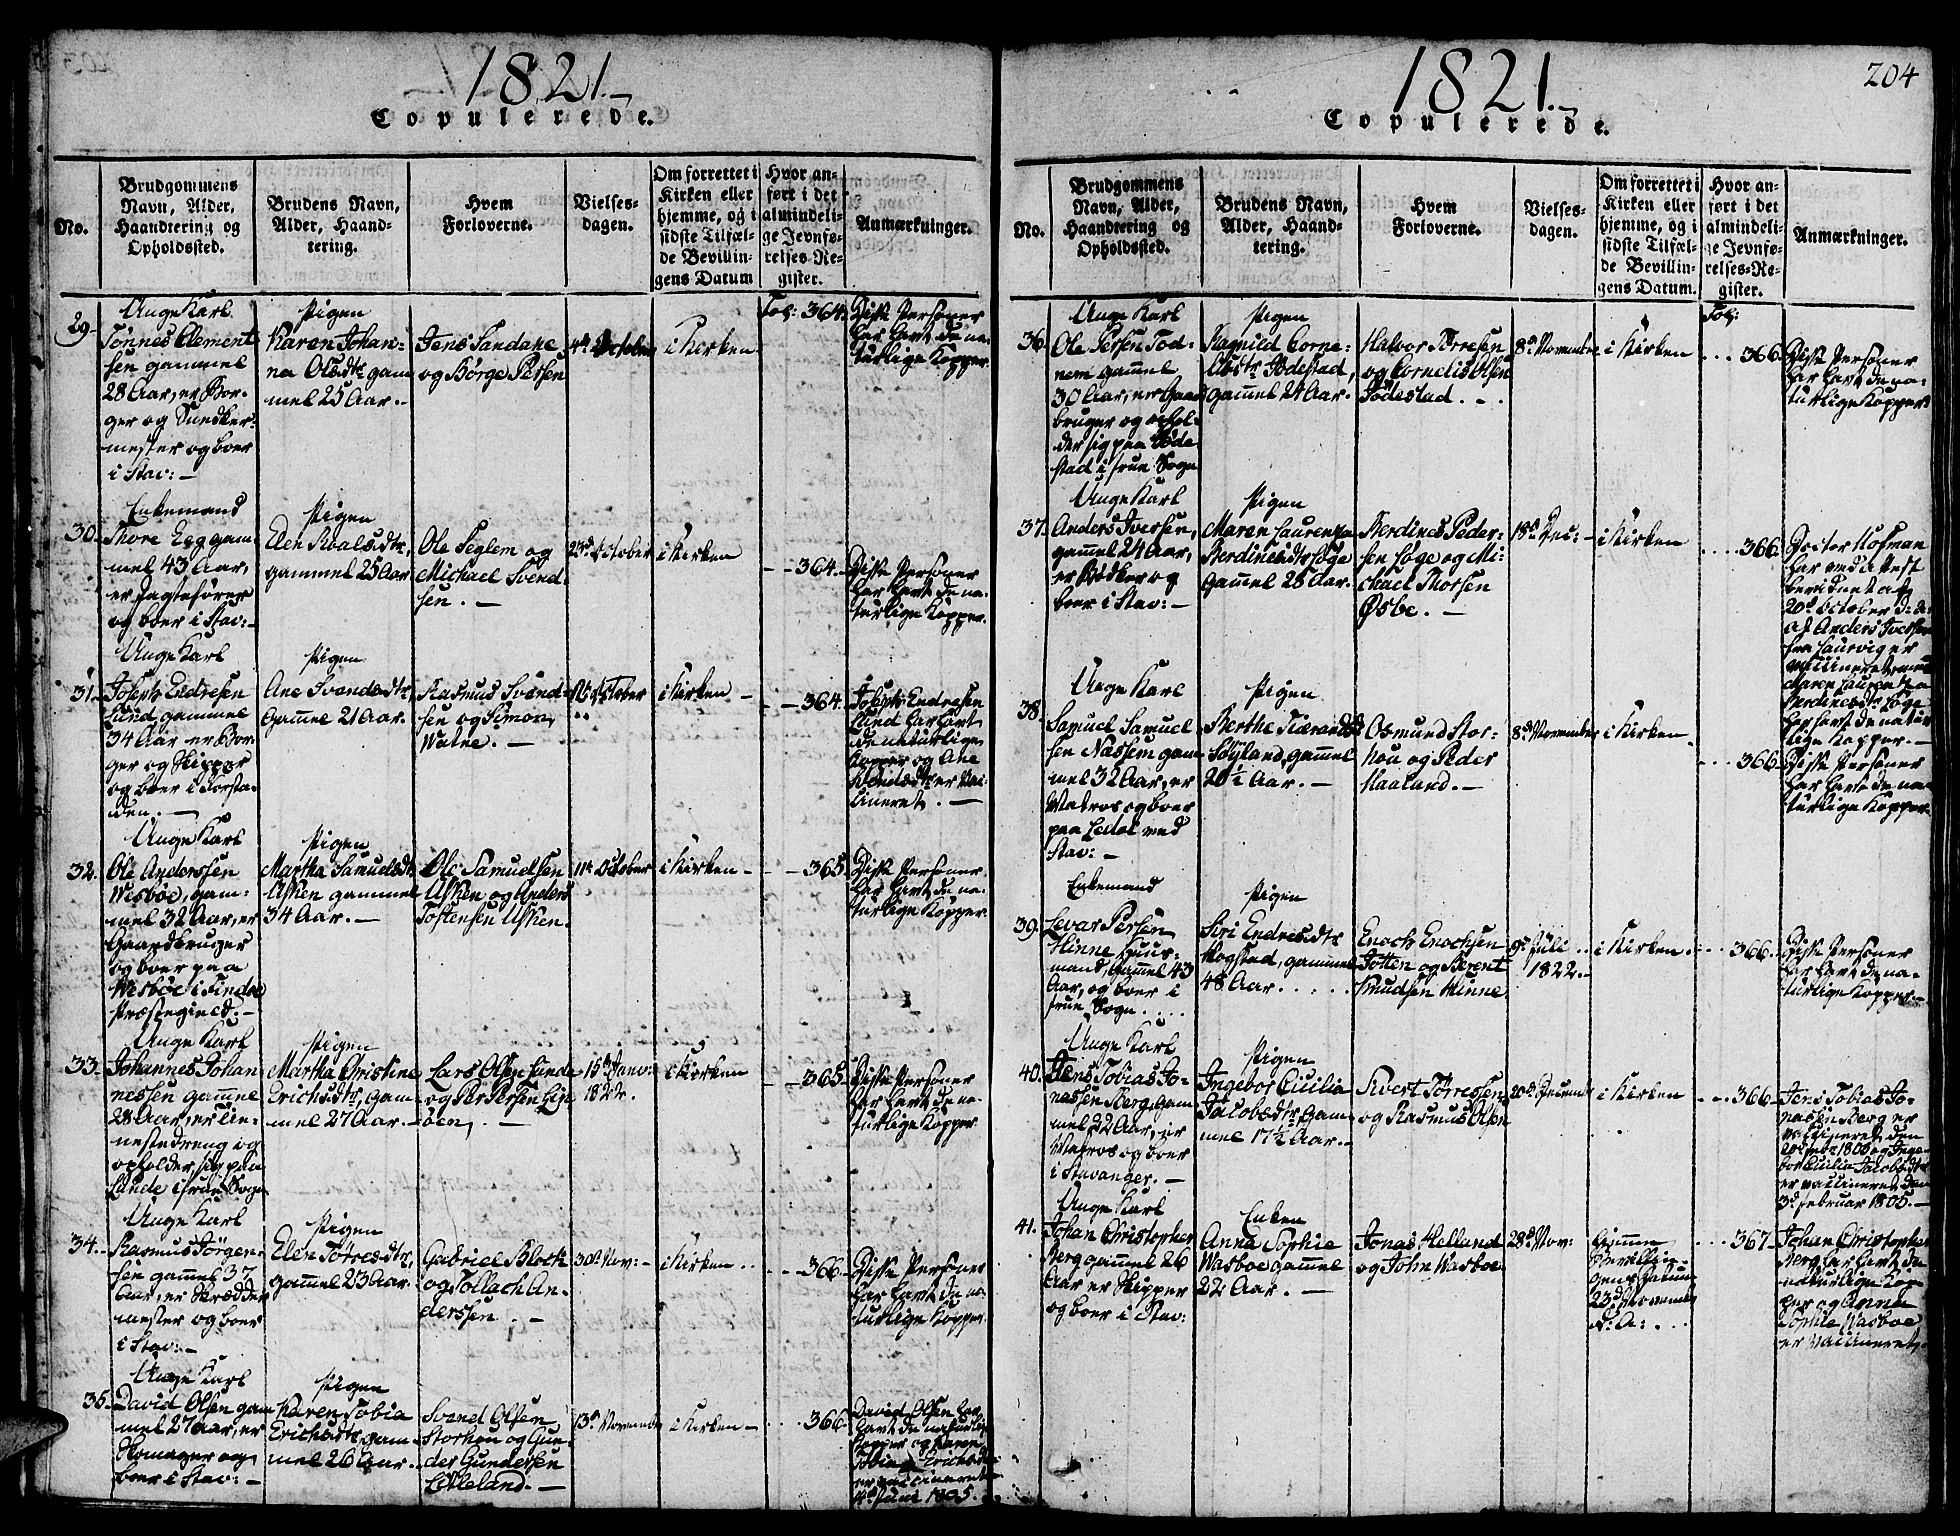 1821.
Copulerede.
No.
Brudgommens
Navn, Alder,
Haandtering og
Opholdssted.
Brudens Navn,
Alder, Haand-
tering.
Hvem
Forloverne.
Vielses-
dagen.
Om forrettet i
Kirken eller
hjemme, og i
sidste Tilfæl-
de Bevillin-
gens Datum
Hvor an-
ført i det
almindeli-
ge Jevnfø-
relses-Re-
gister.
Anmærkninger.
29.
Unge Karl
Tønnes Clement
sen gammel
28 Aar, er Bor-
ger og
mester og boer
i Stav:
Pigen
Karen Johan-
na Olsdtr gam
mel 25 Aar.
Jens Sandake
og Børge Persen
4de October
i Kirken
Fol: 364.
Disse Personer
har havt de na-
turlige Kopper.
30.
Enkemand
Thore Egg gam-
mel 43 Aar,
er Jagtefører
og boer i Stav:
Pigen
Elen Roalsdtr,
gammel 25 Aar
Ole Seglem og
Michael Svend-
sen.
23de October
i Kirken
364.
Disse Personer
har havt de na-
turlige Kopper.
31.
Unge Karl
Joseph Endresen
Lund gammel
34 Aar er Bor-
ger og Skipper
og boer i Forsta-
den.
Pigen
Ane Svendsdtr,
gammel 21 Aar.
Rasmus Svend-
sen og Simon
Walne.
October
i Kirken
364.
Joseph Endresen
Lund har havt
de naturlige
Kopper og Ane
Svendsdtr er vac-
cineret.
32.
Unge Karl
Ole Anderssen
Wesboe, gam-
mel 32 Aar, er
Gaardbruger
og boer paa
Wesboe i Findøe
Præstegield.
Pigen
Martha Samuelsdtr
Asken gammel
34 Aar.
Ole Samuelsen
Asken og Anders
Tostensen Asken.
11te October
i Kirken
365
Disse Personer
har havt de na-
turlige Kopper.
33.
Unge Karl
Johannes Johan
nessen gammel
28 Aar, er Tie-
nestedreng og
opholder sig paa
Lunde i Frue Sogn
Pigen
Martha Christine
Erichsdtr, gam-
mel 27 Aar.
Lars Olsen Lunde
og Per Persen Lin-
døen.
15de Janv:
1822.
i Kirken
365.
Disse Personer
har havt de na-
turlige Kopper
34.
Unge Karl
Rasmus Jørgen-
sen gammel 37
Aar, er Skrædder
mester og boer
i Stav:
Pigen
Elen Torresdtr,
gammel 23 Aar.
Gabriel Block
og Tollach An-
derssen.
30te Nov:
i Kirken
366.
Disse Personer
har havt de na-
turlige Kopper
35.
Unge Karl
David Olsen gam
mel 27 Aar, er
Skomager og
boer i Stav:
Pigen
Karen Tobia
Erichsdtr, gam-
mel 26 Aar.
Svend Olsen
Storhou og Gun-
der Gundersen
Litleland.
13de November
i Kirken
366.
David Olsen har
havt de naturlige
Kopper og Karen
Tobia Erichsdtr
er vaccineret
4de Juni 1805.
1821.
204
Copulerede.
No.
Brudgommens
Navn, Alder,
Haandtering og
Opholdssted.
Brudens Navn,
Alder, Haand-
tering.
Hvem
Forloverne.
Vielses-
dagen.
Om forrettet i
Kirken eller
hjemme, og i
sidste Tilfæl-
de Bevillin-
gens Datum.
Hvor an-
ført i det
almindeli-
ge Jevnfø-
relses-Re-
gister.
Anmærkninger.
36.
Unge Karl
Ole Persen Tod-
nem gammel
30 Aar, er Gaard
bruger og ophol-
der sig paa Jøde
stad i Frue Sogn
Pigen
Ragnild Corne-
liusdtr Jødestad,
gammel 24 Aar.
Halvor Torresen
og Cornelis Olsen
Jødestad.
8de November
i Kirken
Fol:
366.
Disse Personer
har havt de na-
turlige Kopper
37.
Unge Karl
Anders Iversen,
gammel 24 Aar,
er Bødker og
boer i Stav:
Pigen
Maren Laurenza
Ferdinesdtr Løge
gammel 28 Aar.
Ferdines Peder-
sen Løge og Mi-
chael Thorsen
Øsbe.
18de Dec:
i Kirken
366.
Doctor Hofman
har ved Attest
bevidnet af
20de October d: A:
at Anders Iversen
fra Laurvig er
vaccineret men
Maren Laurenza
Ferdinesdtr Løge
har havt de natur
lige Kopper.
38.
Unge Karl
Samuel Samuel
sen Næssem gam
mel 32 Aar, er
Matros og boer
paa Ledal ved
Stav:
Pigen
Berthe
Søyland, gammel
20½ Aar.
Osmund Stor-
hou og Peder
Haaland.
8de November
i Kirken.
366.
Disse Personer
har havt de na-
turlige Kopper
39.
Enkemand
Levar Persen
Hinne Huus-
mand, gammel 43
Aar, og boer i
Frue Sogn.
Pigen
Siri Endresdtr
Hogstad, gammel
48 Aar.
Enoch Enochsen
Jotten og Berent
Knudsen Hinne
9de Juli
1822.
i Kirken.
366.
Disse Personer
har havt de na-
turlige Kopper.
40.
Unge Karl
Jens Tobias Jo-
nassen Berg, gam-
mel 22 Aar, er
Matros og boer
i Stavanger.
Pigen
Ingebor Cicilia
Jacobsdtr, gam-
mel 17½ Aar.
Sivert Torressen
og Rasmus Olsen
20de Decemb
i Kirken
366
Jens Tobias Jo-
nassen Berg er
vaccineret den
1806 og Inge-
bor Cicilia Jacobsdtr
er vaccineret den
3de Februar 1805.
41.
Unge Karl
Johan Christopher
Berg gammel 26
Aar er Skipper
og boer i Stav:
Enken
Anna Sophie
Wasboe gammel
22 Aar.
Jonas Helland
og John Wasboe
28de Nov:
Hiemme
Bevillin-
gens Datum
23de November
d: A:
367.
Johan Christopher
Berg har havt de
naturlige Kop-
per og Anna
Sophie Wasboe
er vaccineret.